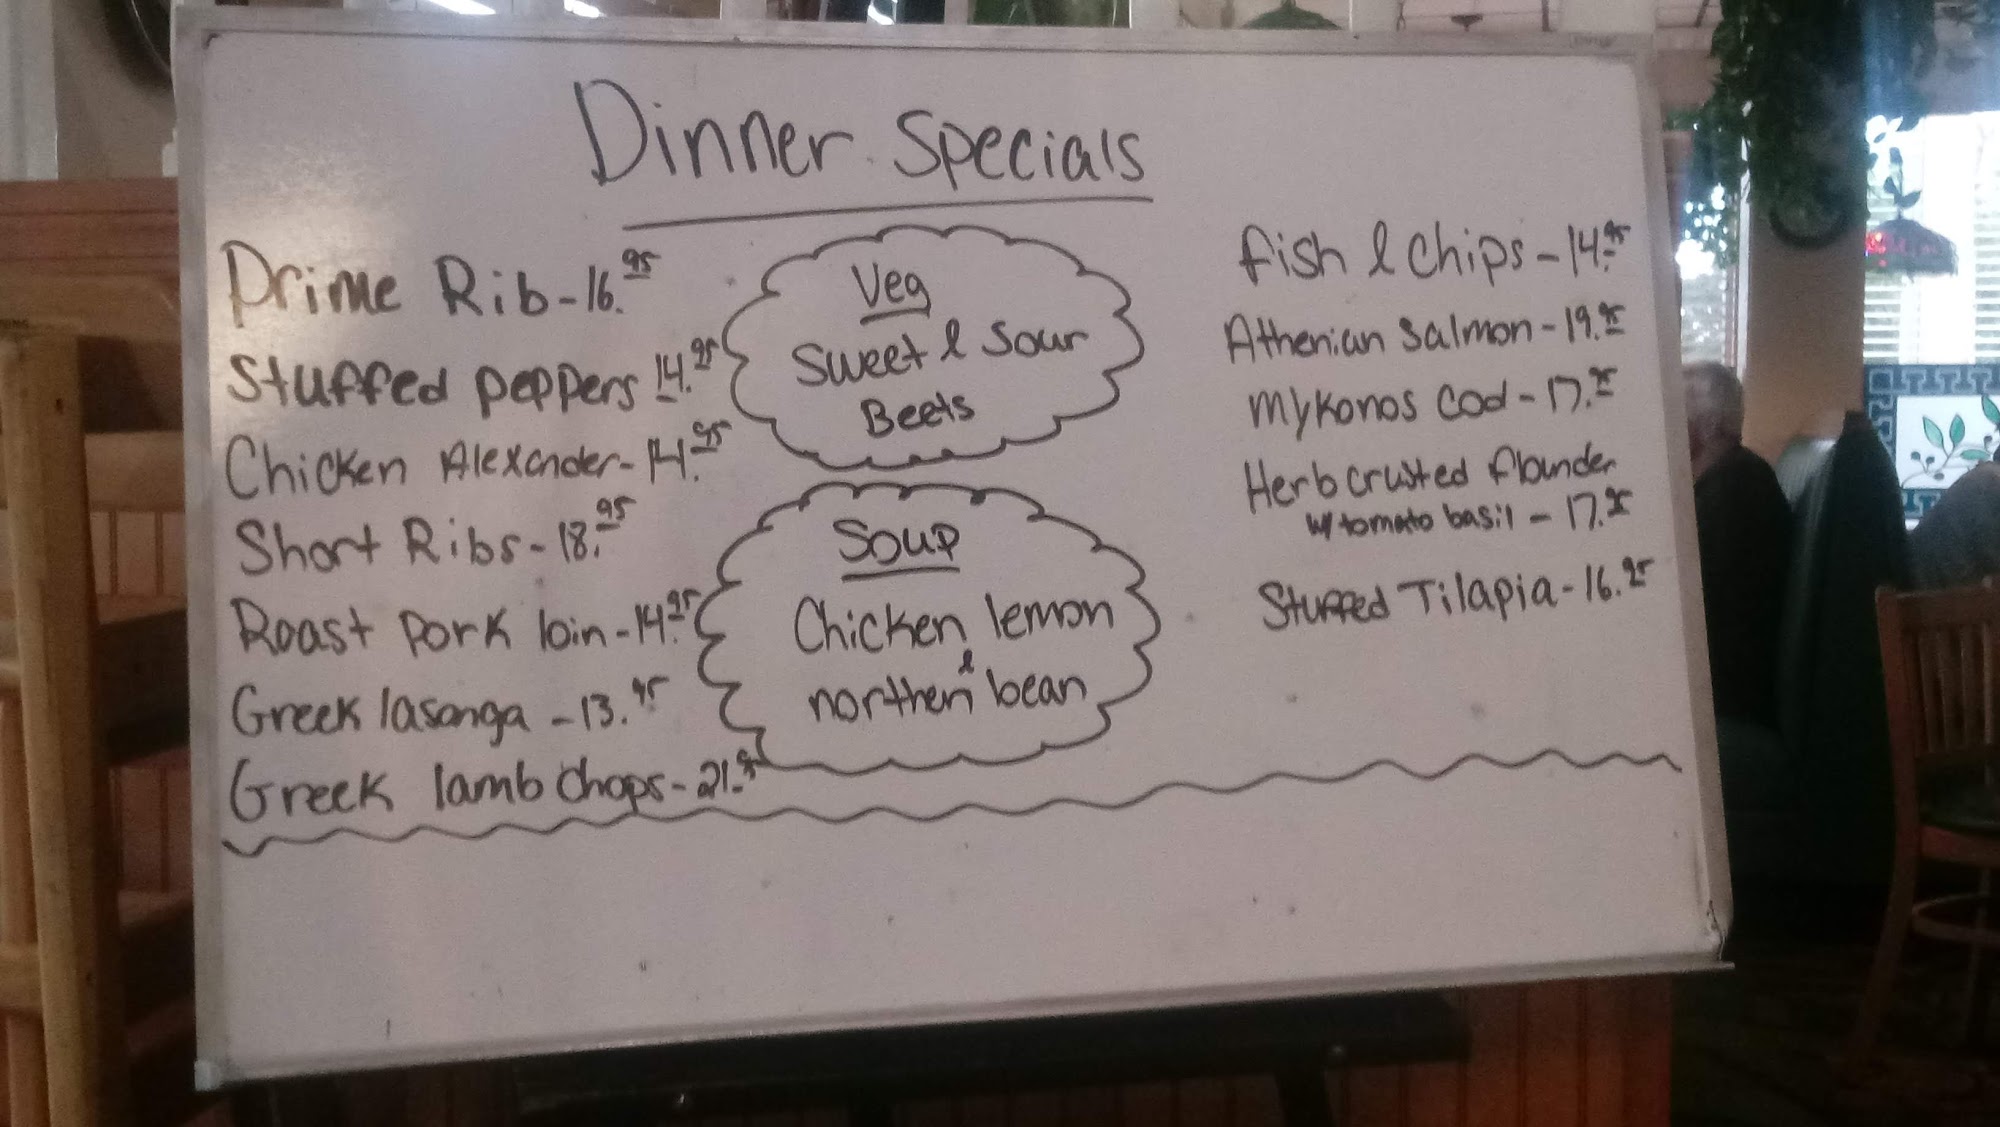 Dinner Specials
Prime Rib - 16.95
Stuffed peppers 14.95
Chicken Alexander - 14.95
Short Ribs - 18.95
Roast pork loin - 14.95
Greek lasanga - 13.95
Greek lamb chops - 21.95
Veg
Sweet & Sour
Beets
Soup
Chicken lemon
&
northern bean
fish & chips - 14.95
Athenian salmon - 19.95
Mykonos cod - 17.95
Herb crusted flounder
w/ tomato basil - 17.95
Stuffed Tilapia - 16.95